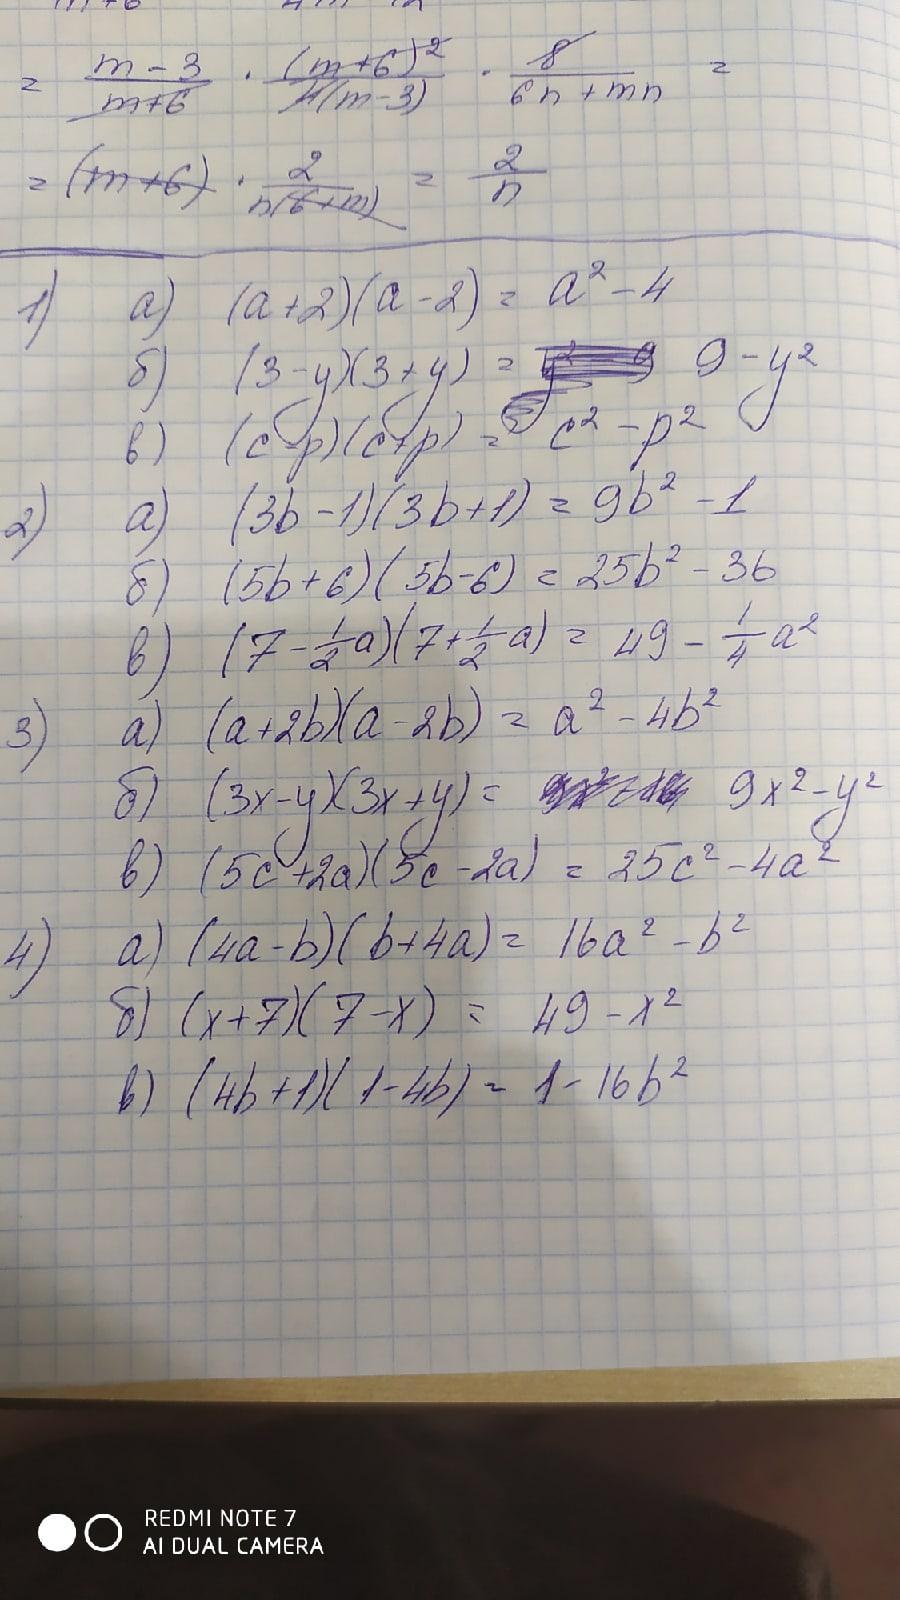 = m-3/m+6 · (m+6)²/4(m-3) · 8/6n+mn =
= (m+6) · 2/n(6+m) = 2/n
1) а) (a+2)(a-2) = a²-4
б) (3-y)(3+y) = 9-y²
в) (c-p)(c+p) = c²-p²
2) а) (3b-1)(3b+1) = 9b²-1
б) (5b+6)(5b-6) = 25b²-36
в) (7-1/2a)(7+1/2a) = 49-1/4a²
3) а) (a+2b)(a-2b) = a²-4b²
б) (3x-y)(3x+y) = 9x²-y²
в) (5c+2a)(5c-2a) = 25c²-4a²
4) а) (4a-b)(b+4a) = 16a²-b²
б) (x+7)(7-x) = 49-x²
в) (4b+1)(1-4b) = 1-16b²
REDMI NOTE 7
AI DUAL CAMERA